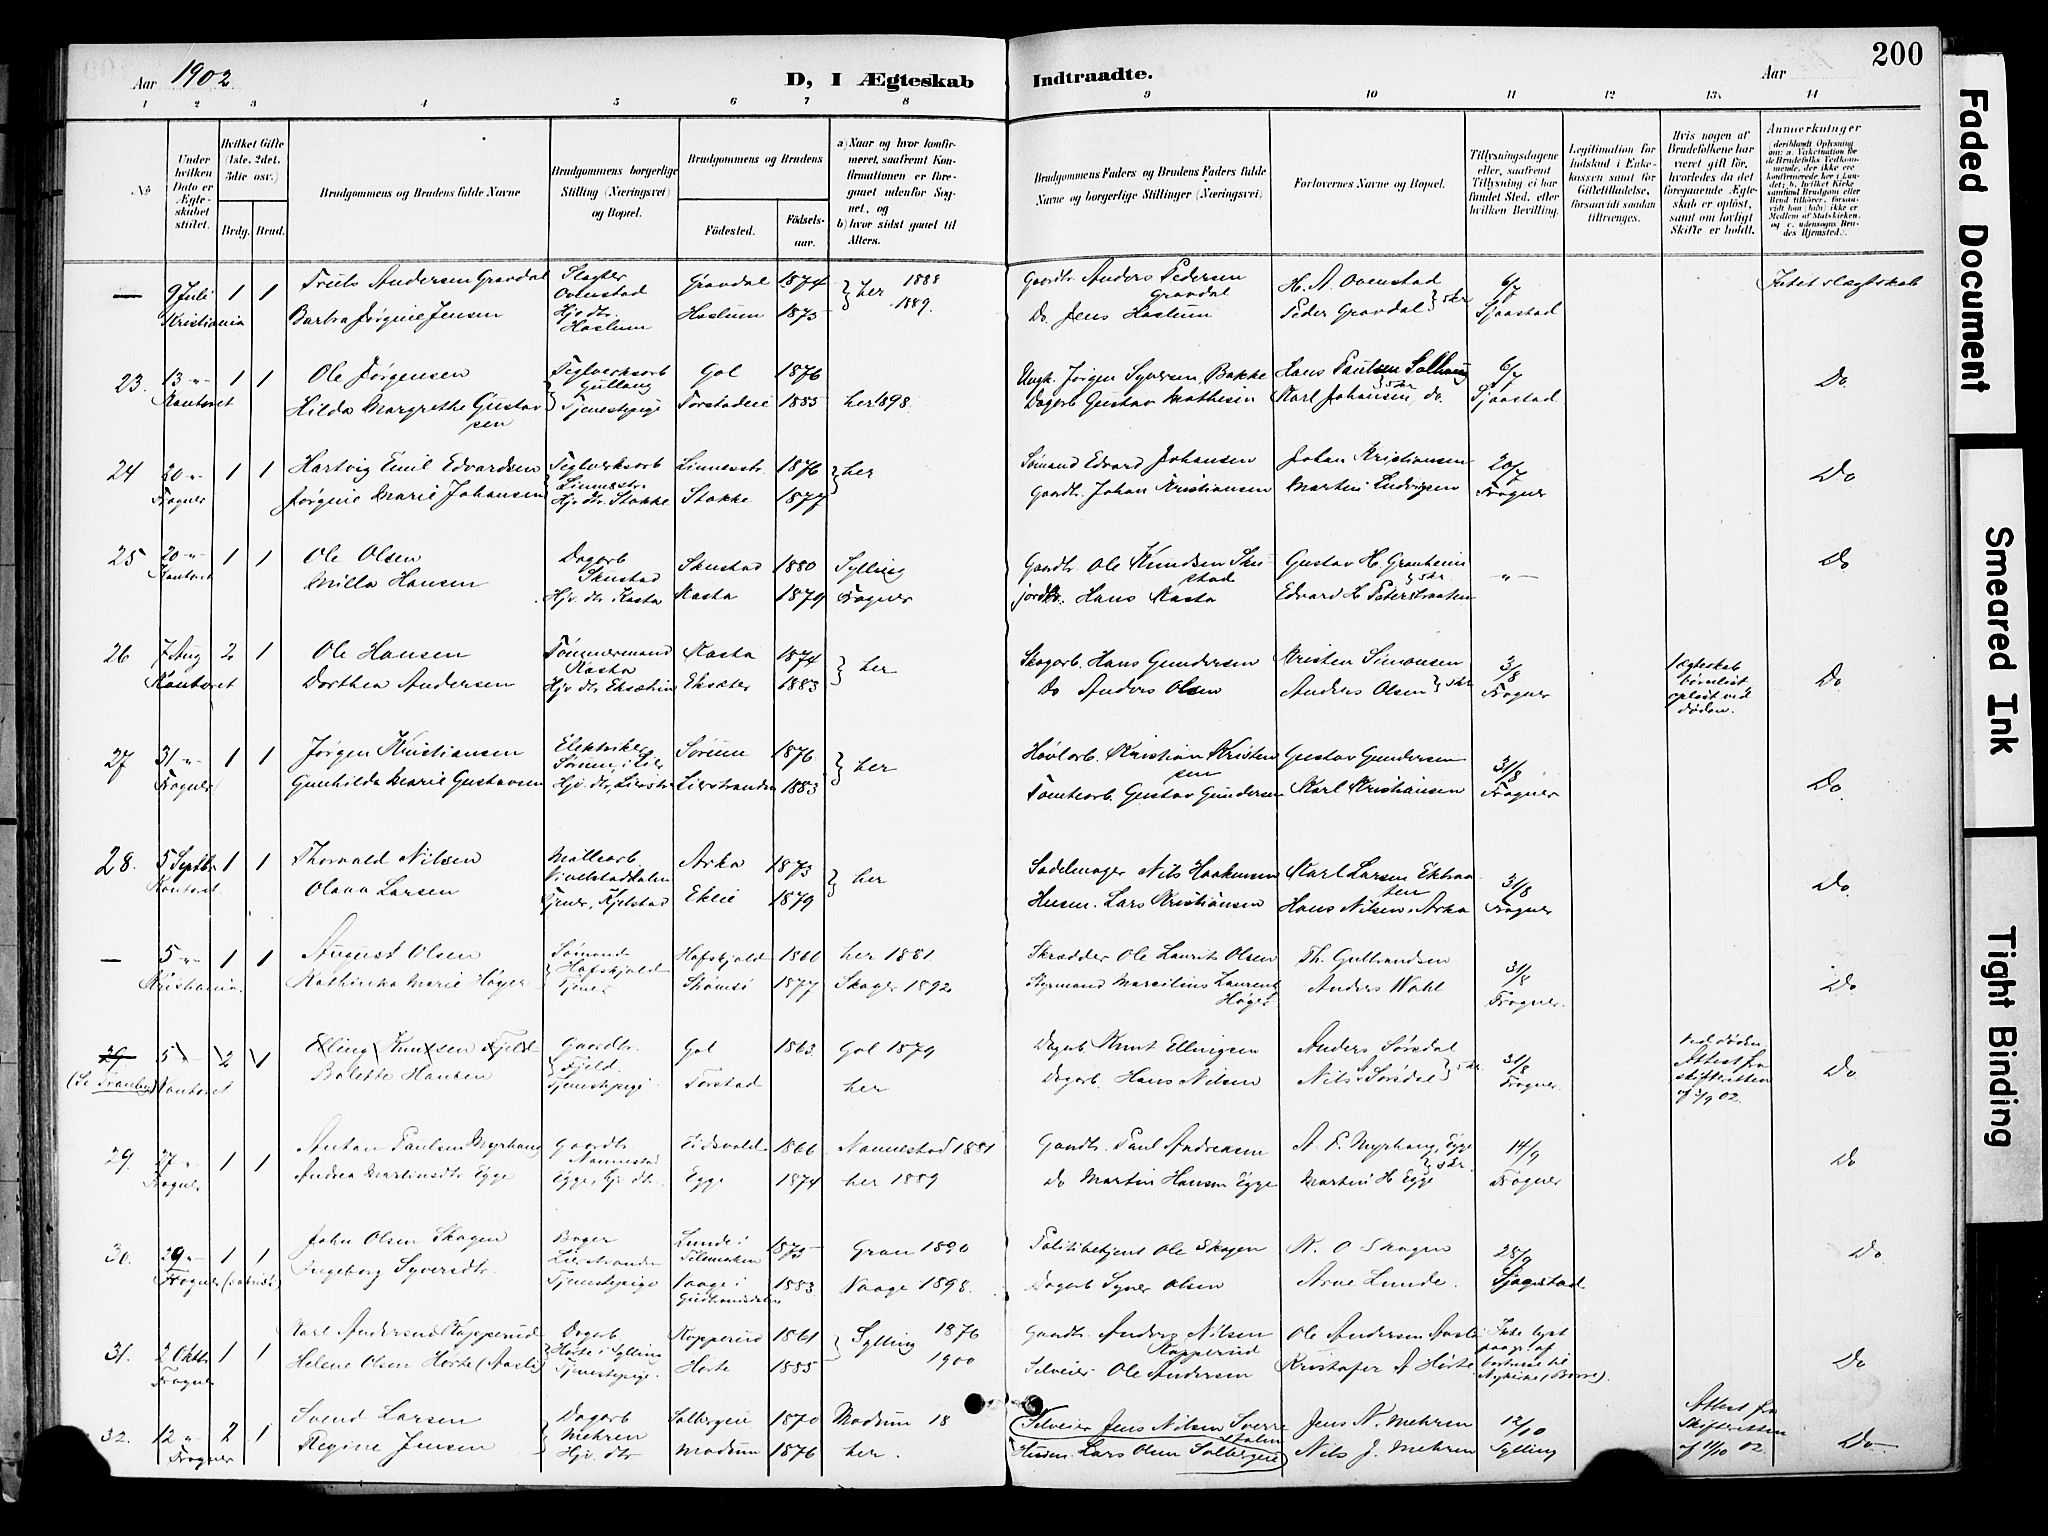 Aar 1902
D, I Ægteskab
Indtraadte.
Aar
200
1 2 3 4 5 6 7 8 9 10 11 12 13. 14
No
Under hvilken Dato er Ægteskabet stiftet.
Hvilket Gifte (1ste, 2det, 3die osv.)
Brdg. Brud.
Brudgommens og Brudens fulde Navne
Brudgommens borgerlige Stilling (Næringsvei) og Bopæl.
Brudgommens og Brudens
Fødested.
Fødselsaar.
a) Naar og hvor konfirmeret, saafremt Konfirmationen er foregaaet udenfor Sognet, og
b) hvor sidst gaaet til Alters.
Brudgommens Faders og Brudens Faders fulde Navne og borgerlige Stillinger (Næringsvei)
Forlovernes Navne og Bopæl.
Tillysningsdagene eller, saafremt Tillysning ei har fundet Sted, efter hvilken Bevilling.
Legitimation for Indskud i Enkekassen samt for Giftetilladelse, forsaavidt saadan tiltrænges.
Hvis nogen af Brudefolkene har været gift før, hvorledes da det foregaaende Ægteskab er opløst, samt om lovligt Skifte er holdt.
Anmærkninger
— 9 Juli 1 1 Truls Andersen Gravdal Slagter Ovenstad Gravdal 1874 her 1888 Gaardbr. Anders Pedersen Gravdal H. A. Ovenstad 6/7 Intet slægtskab
Kristiania Barbra Jørgine Jensen Hjv. dtr. Haslum Haslum 1875 1889. Do. Jens Haslum Peder Gravdal skr Sjaastad
23. 13 -"- 1 1 Ole Jørgensen Teglverksarb Gullaug Gol 1876 Ungk. Jørgen Syversen Bakke Hans Paulsen Solhaug 6/7 Do.
Kontoret Hilda Margrethe Gustavsen Tjenestepige Torstadeie 1885 her 1898. Dagarb Gustav Mathisen Karl Johansen, do. skr Sjaastad
24 20 -"- 1 1 Hartvig Emil Edvardsen Teglverksarb Linnesstr. Linnesstr. 1876 her Sømand Edvard Johansen Johan Kristiansen 20/7 Do
Frogner Jørgine Marie Johansen Hjv. dtr. Stokke Stokke 1877 Gaardbr. Johan Kristiansen Martin Ludvigsen Frogner
25 20 -"- 1 1 Ole Olsen Dagarb Skustad Skustad 1880 Sylling Gaardbr. Ole Knudsen Skustad Gustav H. Granheim -"- Do
Kontoret Milla Hansen Hjv. dtr Kasta Kasta 1879 Frogner jordbr. Hans Kasta Edvard H. Pedersbraaten skr
26 7 Aug 2 1 Ole Hansen Tømmermand Kasta Kasta 1874 her Skogarb. Hans Gundersen Kristen Simonsen 3/8 1 ægteskab børnløst opløst ved døden. Do
Kontoret Dorthea Andersen Hjv. dtr. Eksæter 1883 Do Anders Olsen Anders Olsen skr Frogner
27 31 -"- 1 1 Jørgen Kristiansen Elektriker Sørum i Lier Sørum 1876 her Høvlarb. Kristian Kristensen Gustav Gundersen 31/8 Do.
Frogner Gunhilda Marie Gustavsen Hjv. dtr, Lierstr Lierstranden 1883 Tomtearb. Gustav Gundersen Karl Kristiansen Frogner
28. 5 Septbr 1 1 Thorvald Nilsen Møllearb. Arka 1873 her Sadelmager Nils Haakensen Karl Larsen 31/8 Do
Kontoret. Olava Larsen Tjener, Kjelstad Ekeie 1879 Husm. Lars Kristiansen Hans Nilsen Arka Frogner
— 5 -"- 1 1 August Olsen Sømand Hafskjold Hafskjold 1860 her 1881 Skrædder Ole Laurits Olsen Th. Gulbrandsen 31/8 Do
Kristiania. Kathinka Marie Høyer Tjener Strømsø 1877 Skoger 1892 Styrmand Marcilius Laurentz Høyer Anders Wahl Frogner.
29 5 2 1 Elling Knutsen Fjeld Gaardbr. Fjeld. Gol 1863. Gol 1879 Dagarb Knut Ellingsen Anders Sørsdal 31/8 ved døden. Attest fra skifteretten af 3/9 02. Do
Kontoret Bolette Hansen Tjenestepige Torstad her Dagarb. Hans Nilsen Nils Sørsdal skr. Frogner
29. 27 " 1 1 Anton Paulsen Myrhaug Gaardbr. Nannestad Eidsvold 1866 Nannestad 1881 Gaardbr. Paul Andreasen A. P. Myrhaug, Egge 14/9 Do
Frogner Andrea Martinsdtr Egge Egge, hjv. dtr. Egge 1874 her 1889 Do Martin Hansen Egge Martin H. Egge skr. Frogner
30. 29 " 1 1 John Olsen Skogen Bager Lierstranden Lunde i Telemarken 1875 Gran 1890 Politibetjent Ole Skogen K. O. Skogen 28/9 Do
Frogner Ingeborg Syversdtr. Tjenestepige Vaage i Gudbrandsdalen 1883 Vaage 1898. Dagarb Syver Olsen Arne Lunde. Sjaastad
31. 2 Oktbr 1 1 Karl Andersen Kopperud Dagarb Hørte i Sylling Kopperud 1861 Sylling 1876 Gaardbr. Anders Nilsen Kopperud Ole Andersen Aasli Ikke lyst
Frogner Helene Olsen Hørte (Aasli) Tjenestepige. Hørte 1885 1900 Selveier Ole Andersen Kristofer A Hørte Do
32. 12 " 2 1 Svend Larsen Dagarb Mehren Solbergeie 1870 Modum 18 Selveier Jens Nilsen Jens N. Mehren 12/10 Attest fra Skifteretten af 11/10 02. Do
Frogner Regine Jensen Hjv. dtr Modum 1876 her. Husm. Lars Olsen Solbergeie Nils J. Mehren Sylling
Faded Document
Smeared Ink
Tight Binding